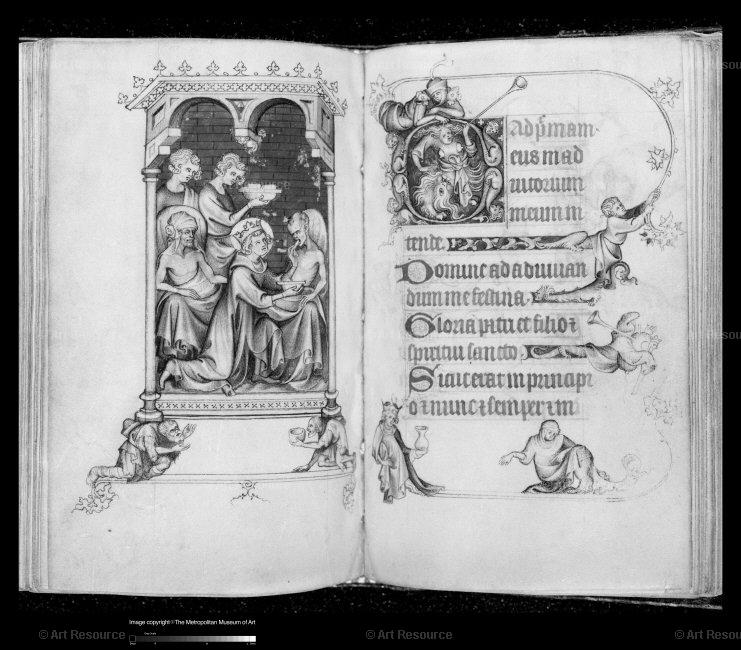 Ad p̄mam.
eus in ad
iutorium
meum in
tende.
Domine ad adiuvan
dum me festina.
Gloria patri et filio ⁊
spiritui sancto.
Sicut erat in principi
o ⁊ nunc ⁊ semper ⁊ in
Image copyright © The Metropolitan Museum of Art
© Art Resource
© Art Resource
© Art Resource